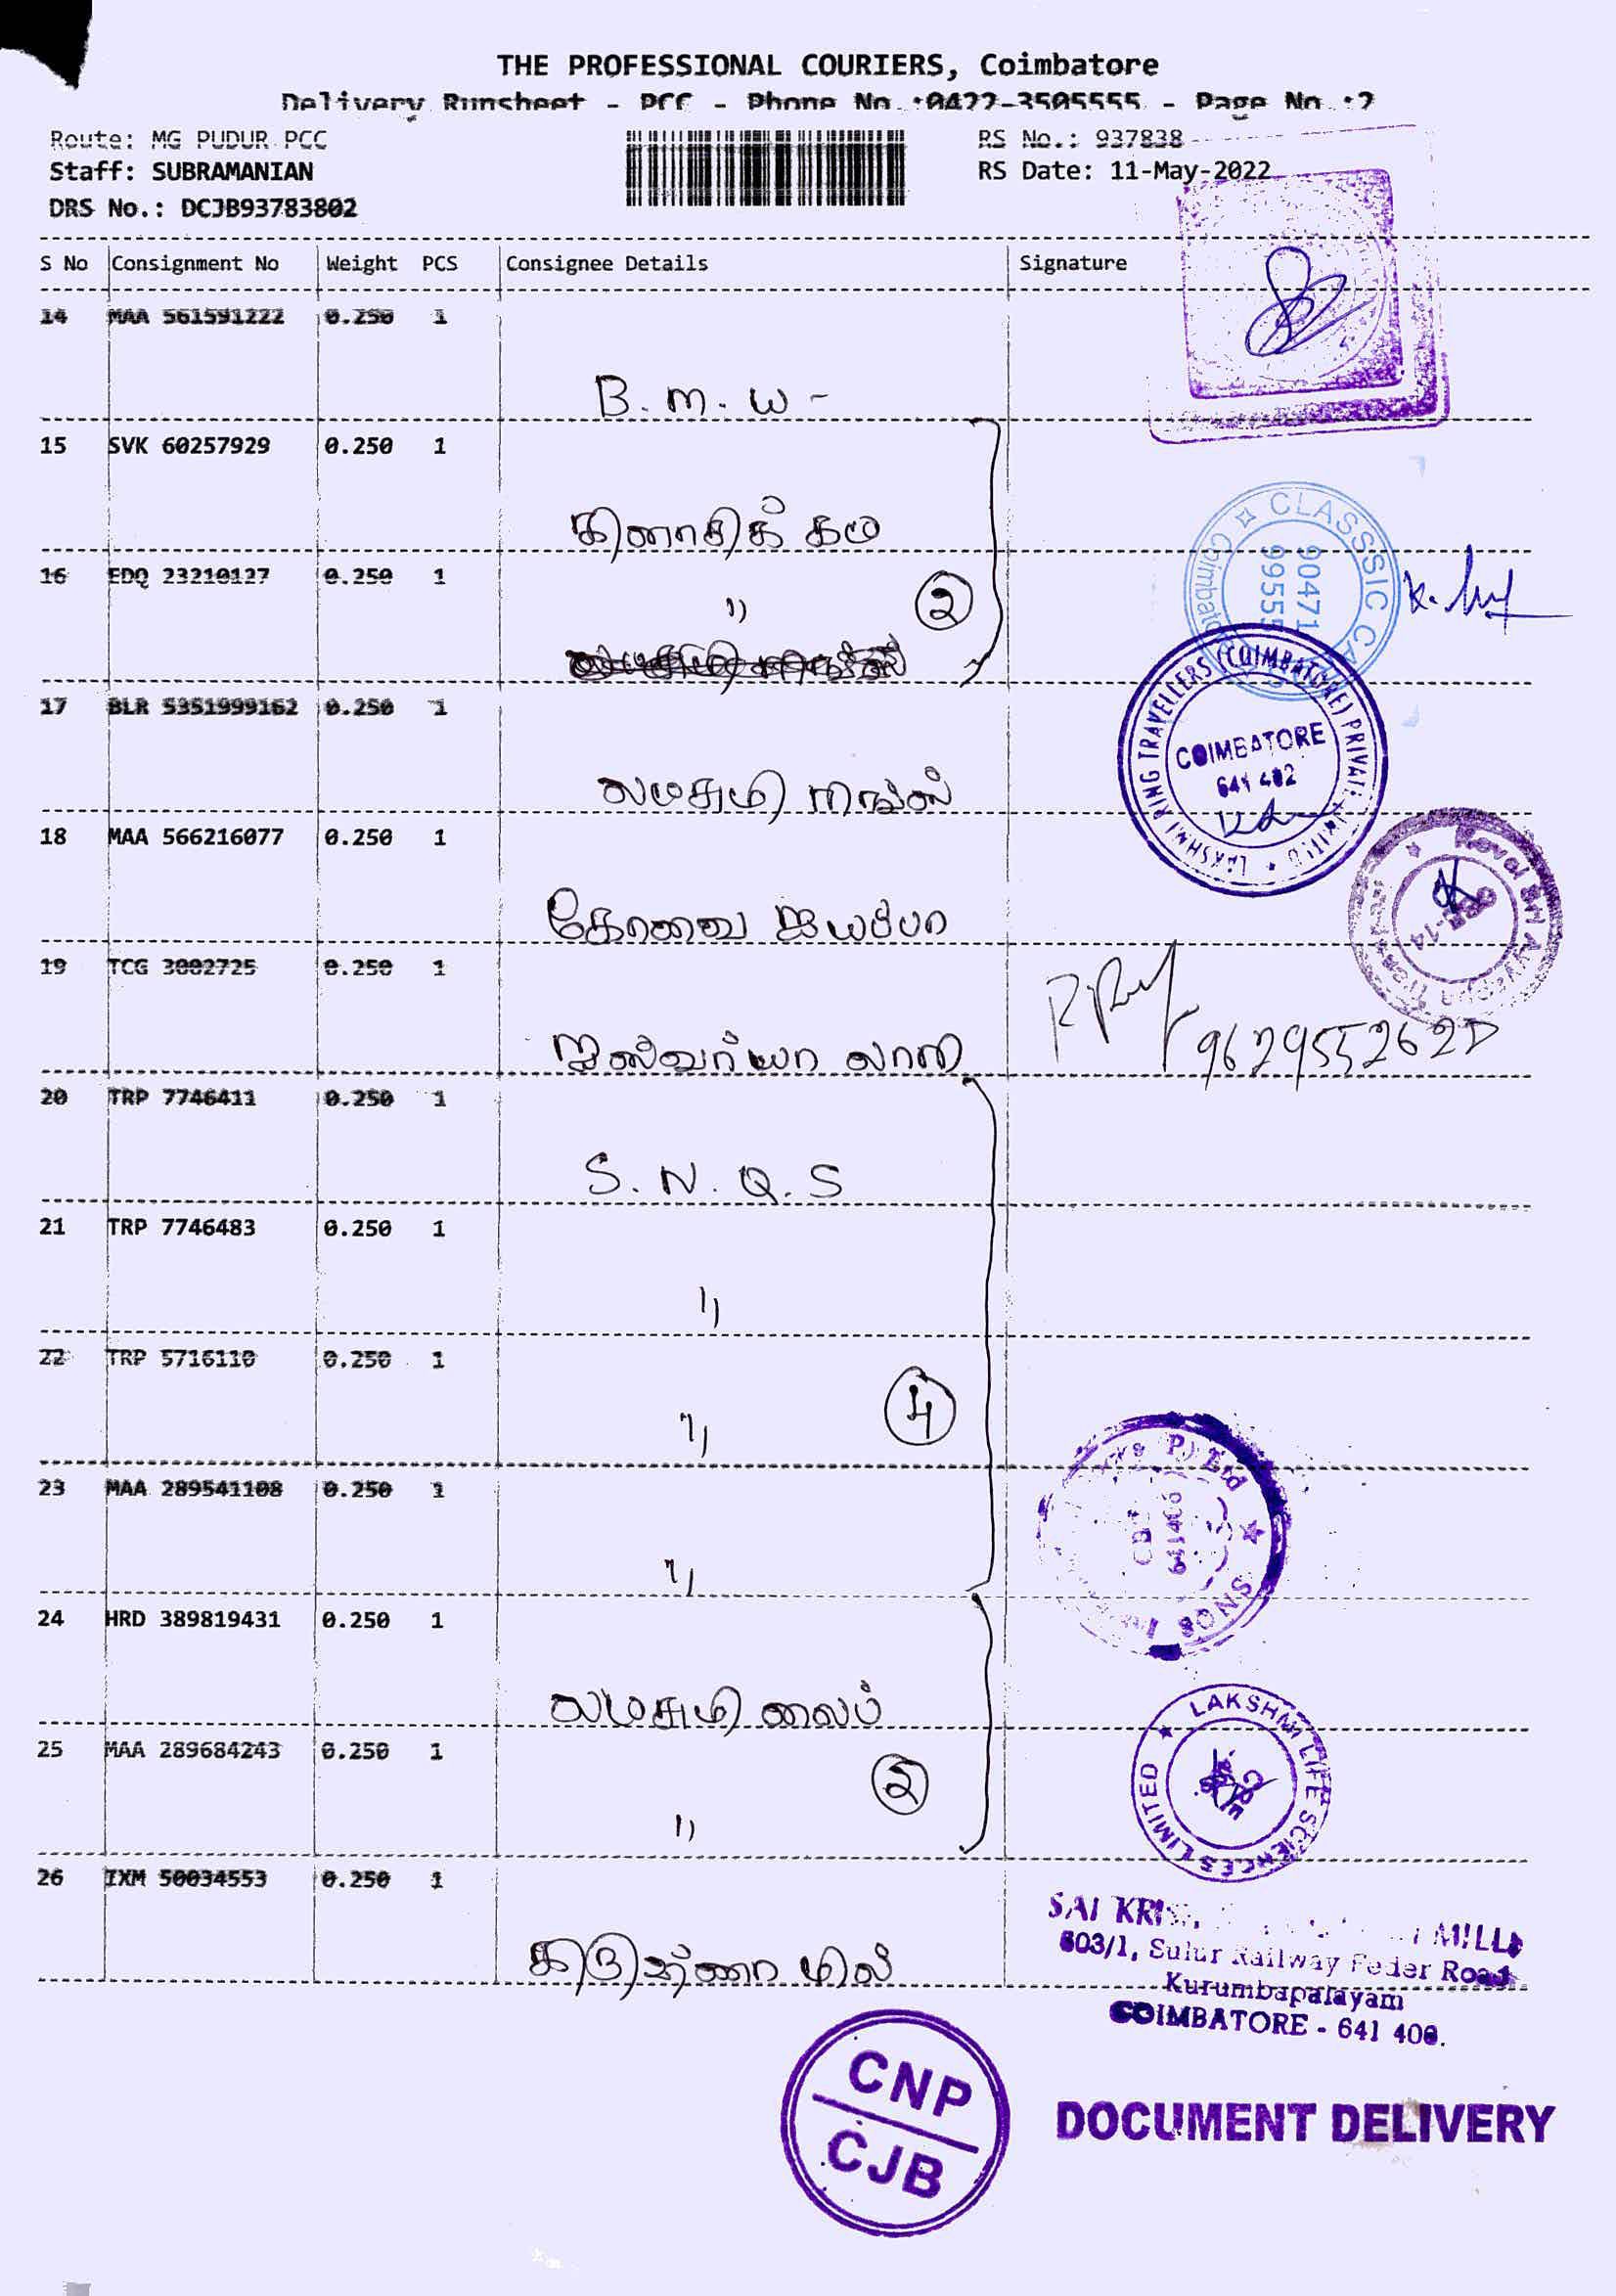 THE PROFESSIONAL COURIERS, Coimbatore
Delivery Runsheet - PCC - Phone No.:0422-3505555 - Page No.:2
Route: MG PUDUR PCC
RS No.: 937838
Staff: SUBRAMANIAN
RS Date: 11-May-2022
DRS No.: DCJB93783802
S No Consignment No Weight PCS Consignee Details Signature
14 MAA 561591222 0.250 1
B.M.W -
15 SVK 60257929 0.250 1
கிளாசிக் கம
16 EDQ 23210127 0.250 1
" 2
CLASSSIC
90471
99555
Coimbatore
17 BLR 5351999162 0.250 1
லட்சுமி ரிங்ஸ்
LAKSHMI RING TRAVELLERS (COIMBATORE) PRIVATE LIMITED
COIMBATORE
641 402
18 MAA 566216077 0.250 1
கோவை ஐயப்பா
19 TCG 3002725 0.250 1
ஐஸ்வர்யா லாரி
9629552620
20 TRP 7746411 0.250 1
S.N.Q.S
21 TRP 7746483 0.250 1
"
22 TRP 5716110 0.250 1
" 4
23 MAA 289541108 0.250 1
"
SNQS P) Ltd
24 HRD 389819431 0.250 1
லட்சுமி லைப்
25 MAA 289684243 0.250 1
" 2
LAKSHMI LIFE SCIENCES LIMITED
26 IXM 50034553 0.250 1
கிருஷ்ணா மில்
SAI MILLS
603/1, Sulur Railway Feder Road
Kurumbapalayam
COIMBATORE - 641 406.
CNP
CJB
DOCUMENT DELIVERY